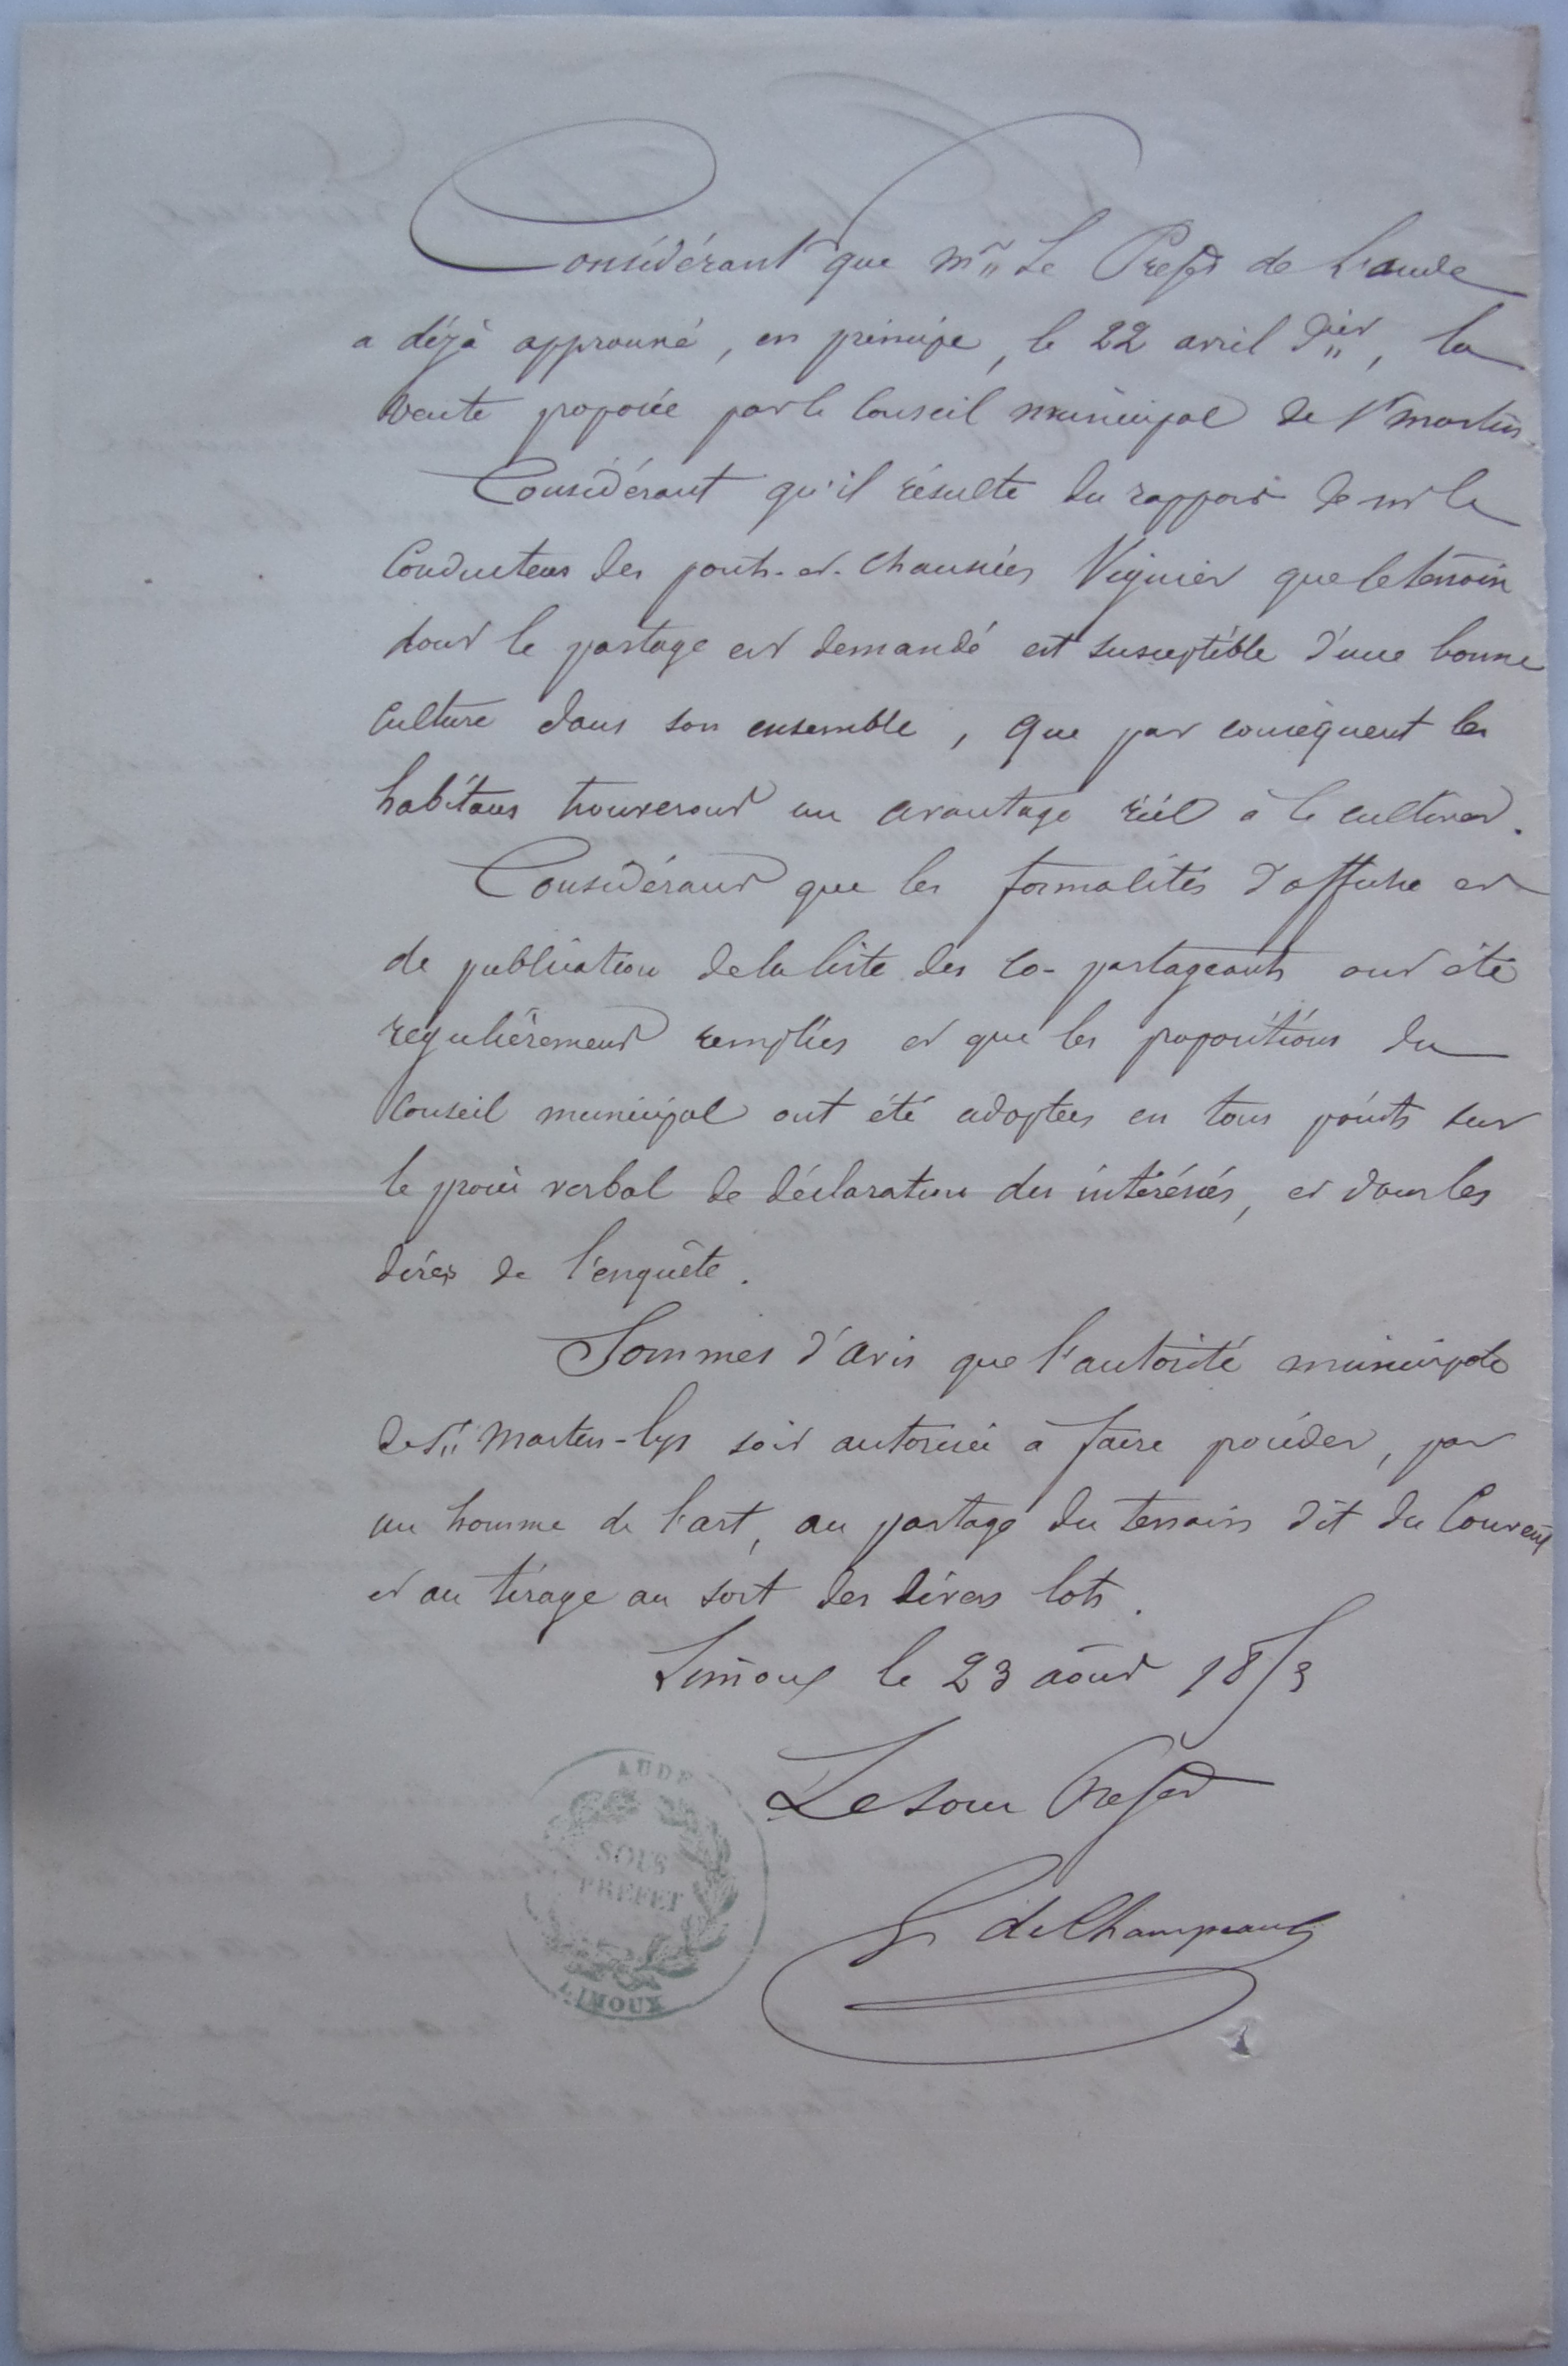 Considérant que Mr Le Prefet de L'aude
a déjà approuvé, en principe, le 22 avril dier, la
vente proposée par le Conseil municipal de St martin.
Considérant qu'il résulte du rapport de mr le
Conducteur des ponts-et-chaussées Viguier que le terrain
dont le partage est demandé est susceptible d'une bonne
culture dans son ensemble, que par conséquent les
habitans trouveront un avantage réel à le cultiver.
Considérant que les formalités d'affiche et
de publication de la liste des co-partageants ont été
regulièrement remplies et que les propositions du
Conseil municipal ont été adoptées en tous points sur
le procès verbal de déclaration des intéréssés, et dans les
dires de l'enquête.
Sommes d'avis que l'autorité municipale
de St Martin-lys soit autorisée à faire procéder, par
un homme de l'art, au partage du terrain dit du Couvent
et au tirage au sort des divers lots.
Limoux le 23 août 18
Le sous Prefet
G de Champeaux
AUDE
SOUS
PREFET
LIMOUX